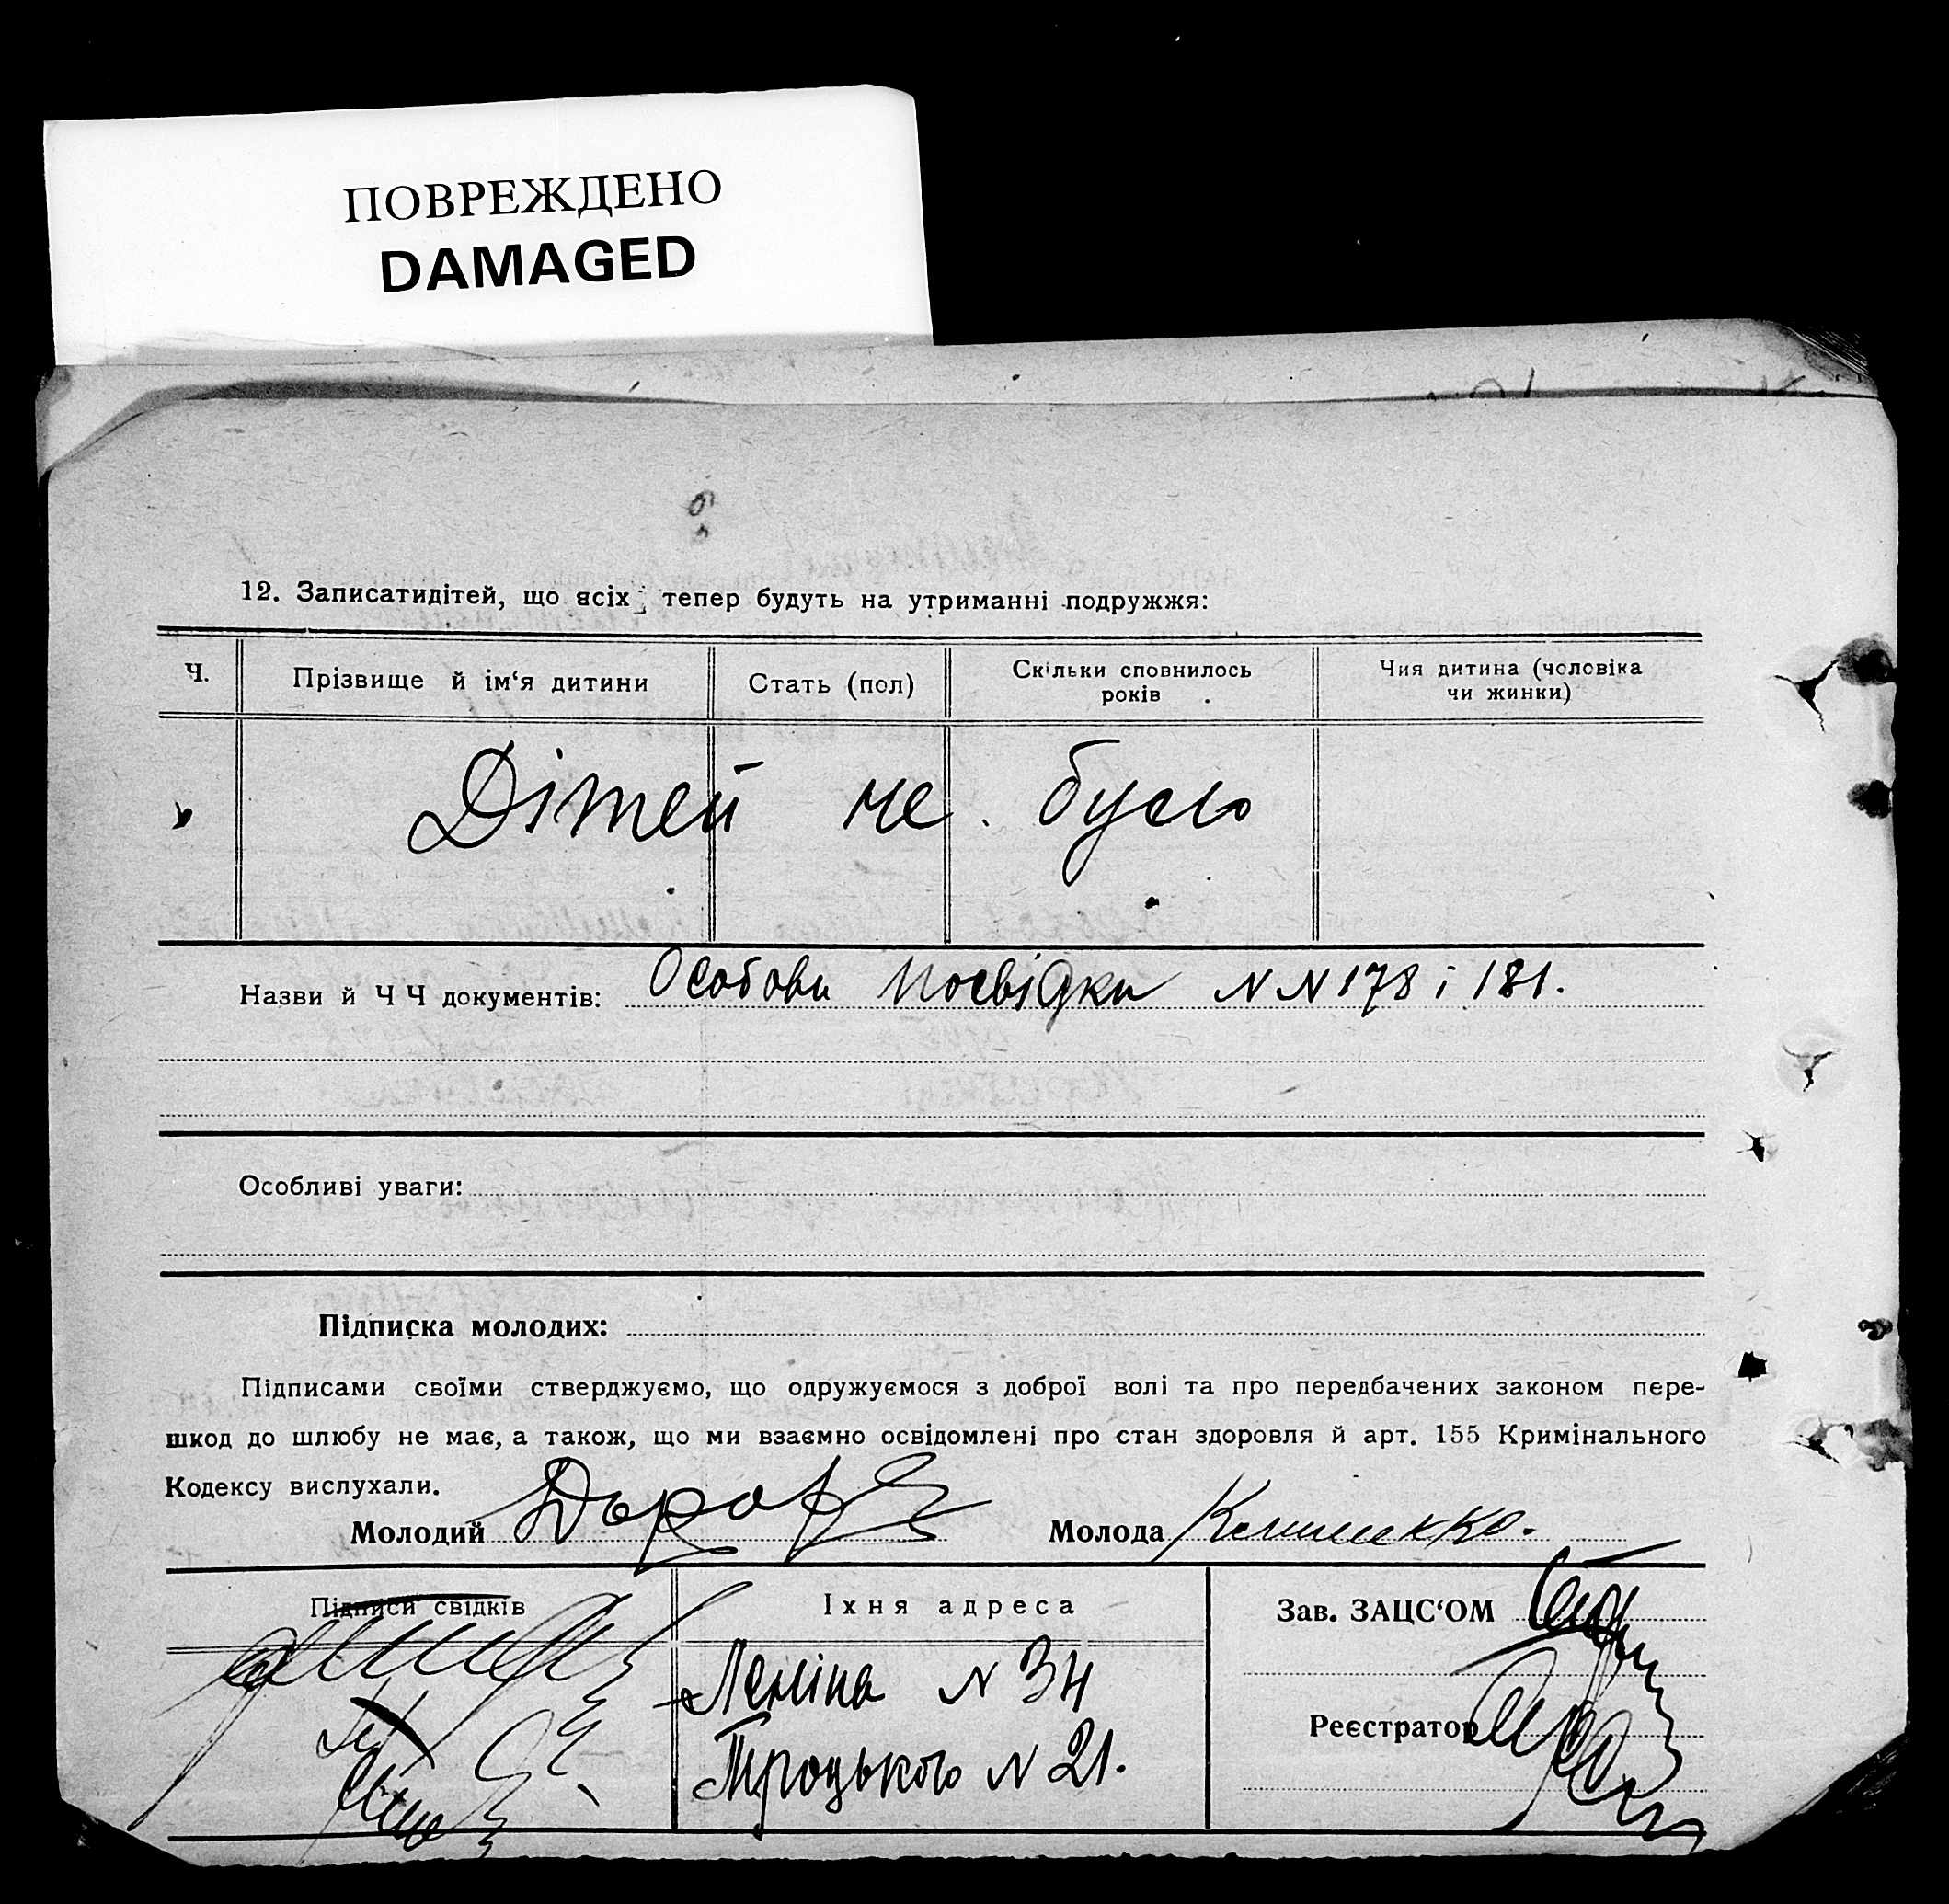 ПОВРЕЖДЕНО
DAMAGED
12. Записатидітей, що всіх тепер будуть на утриманні подружжя:
Ч. Прізвище й ім‘я дитини Стать (пол) Скільки сповнилось років Чия дитина (чоловіка чи жинки)
Дітей не було
Назви й Ч Ч документів: Особови Посвідки N N 178 і 181.
Особливі уваги:
Підписка молодих:
Підписами своїми стверджуємо, що одружуємося з доброї волі та про передбачених законом пере-
шкод до шлюбу не має, а також, що ми взаємно освідомлені про стан здоровля й арт. 155 Кримінального
Кодексу вислухали.
Молодий Молода
Підписи свідків Їхня адреса Зав. ЗАЦС‘ОМ
Леніна N 34
Реєстратор
Троцького N 21.